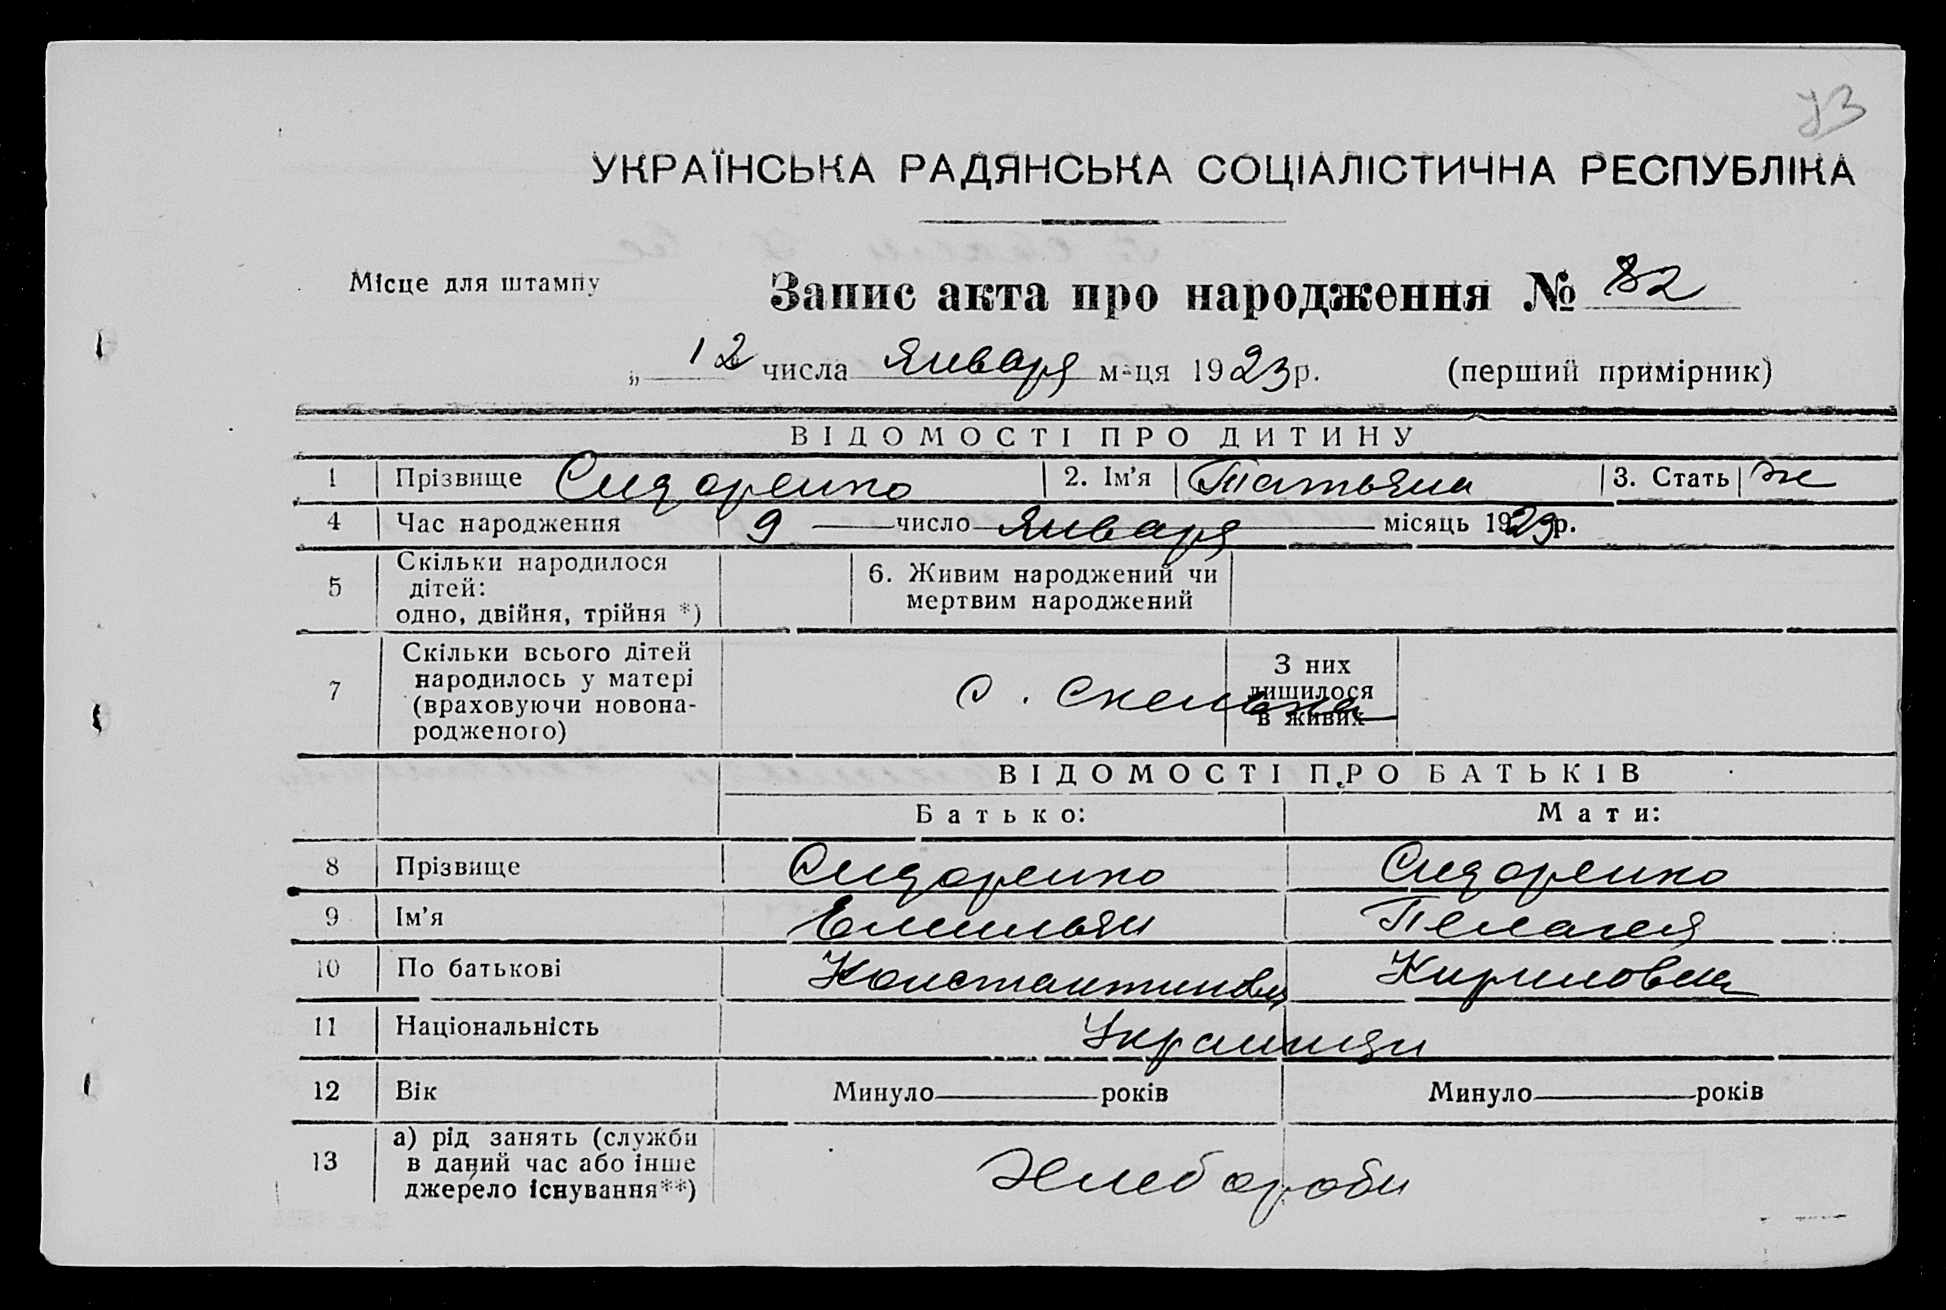 УЗ
УКРАЇНСЬКА РАДЯНСЬКА СОЦІАЛІСТИЧНА РЕСПУБЛІКА
Місце для штампу
Запис акта про народження № 82
„ 12 числа Января м-ця 1923 р. (перший примірник)
ВІДОМОСТІ ПРО ДИТИНУ
1 Прізвище Сидоренко 2. Ім'я Татьяна 3. Стать ж
4 Час народження 9 число Января місяць 1923 р.
5 Скільки народилося дітей: одно, двійня, трійня *) 6. Живим народжений чи мертвим народжений
7 Скільки всього дітей народилось у матері (враховуючи новонародженого) с. З них лишилося в живих
ВІДОМОСТІ ПРО БАТЬКІВ
Батько: Мати:
8 Прізвище Сидоренко Сидоренко
9 Ім'я Емильян Пелагея
10 По батькові Константинович Кириловна
11 Національність Украинци
12 Вік Минуло років Минуло років
13 а) рід занять (служби в даний час або інше джерело існування**) Хлебороби